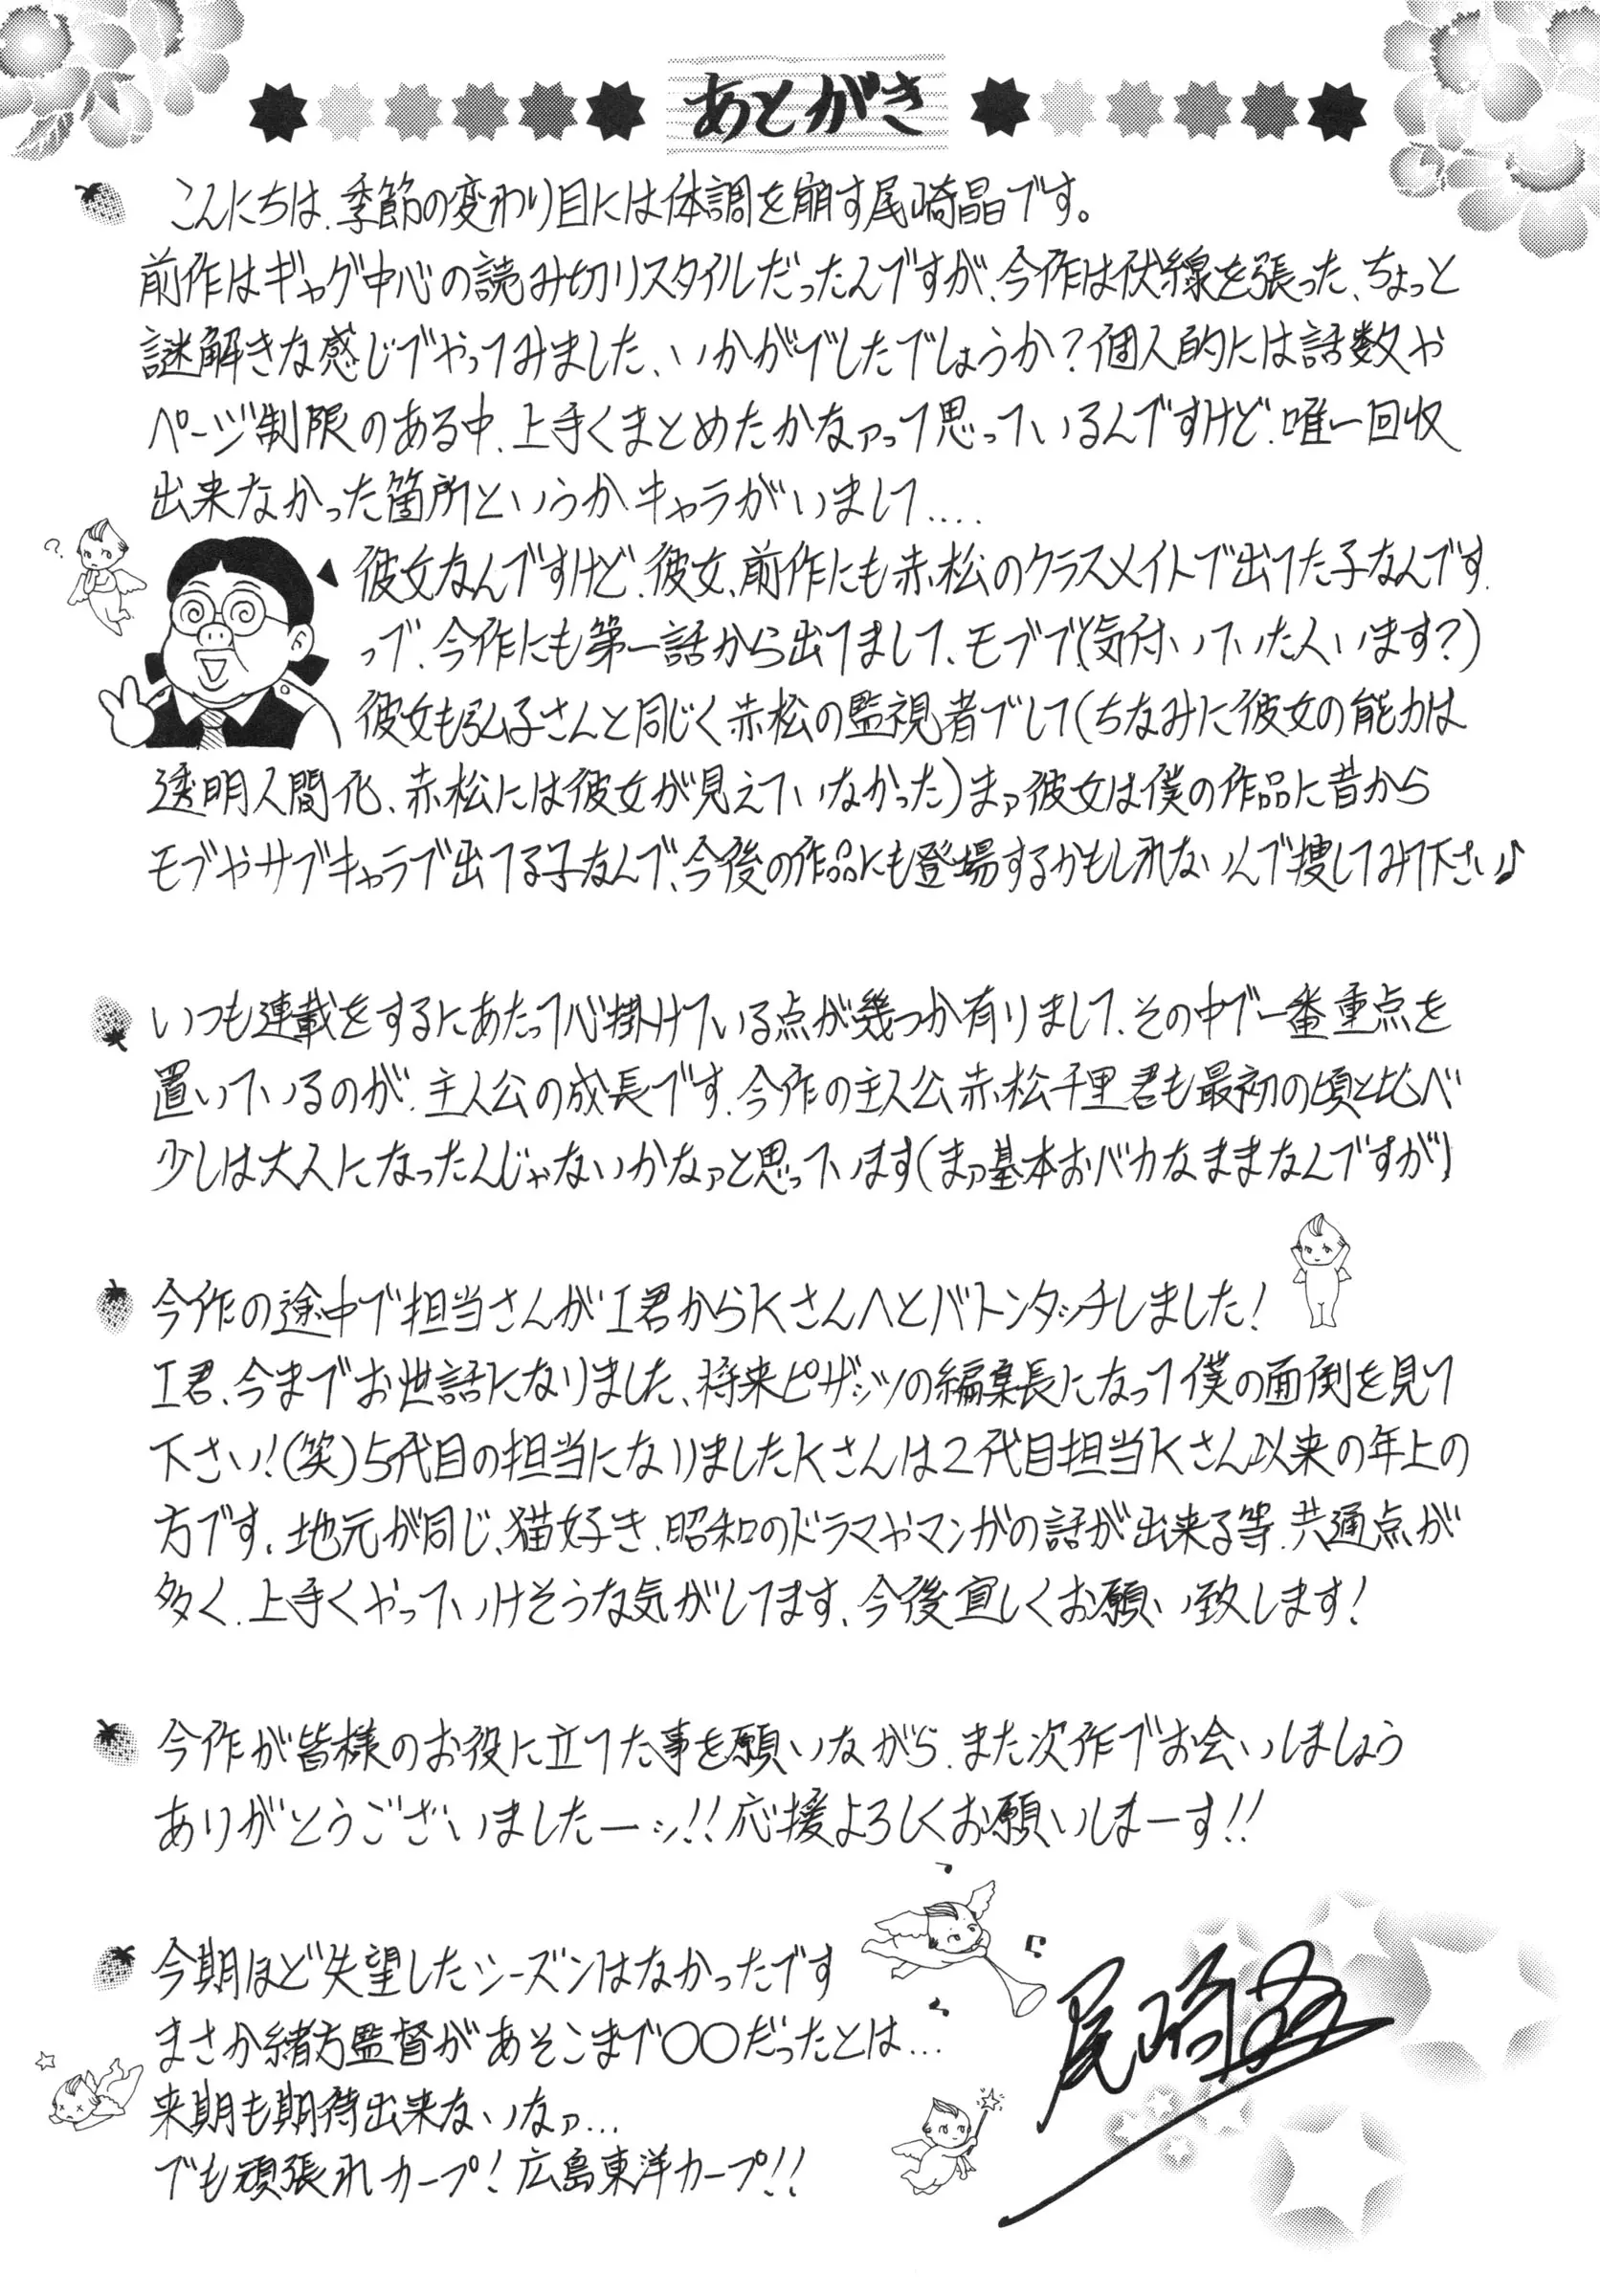 あとがき
こんにちは、季節の変わり目には体調を崩す尾崎晶です。
前作はギャグ中心の読み切りスタイルだったんですが、今作は伏線を張った、ちょっと
謎解きな感じでやってみました、いかがでしたでしょうか？個人的には話数や
ページ制限のある中、上手くまとめたかなァって思っているんですけど、唯一回収
出来なかった箇所というかキャラがいまして....
彼女なんですけど、彼女、前作にも赤松のクラスメイトで出てた子なんです、
っで、今作にも第一話から出てまして、モブで(気付いていた人います？)
彼女も弘子さんと同じく赤松の監視者でして(ちなみに彼女の能力は
透明人間化、赤松には彼女が見えていなかった)まァ彼女は僕の作品に昔から
モブやサブキャラで出てる子なんで、今後の作品にも登場するかもしれないんで捜してみて下さい♪
いつも連載をするにあたって心掛けている点が幾つか有りまして、その中で一番重点を
置いているのが、主人公の成長です、今作の主人公、赤松千里君も最初の頃と比べ
少しは大人になったんじゃないかなァと思っています(まァ基本おバカなままなんですが)
今作の途中で担当さんがI君からKさんへとバトンタッチしました！
I君、今までお世話になりました、将来ピザッツの編集長になって僕の面倒を見て
下さい！(笑)5代目の担当になりましたKさんは2代目担当Kさん以来の年上の
方です、地元が同じ、猫好き、昭和のドラマやマンガの話が出来る等、共通点が
多く、上手くやっていけそうな気がしてます、今後宜しくお願い致します！
今作が皆様のお役に立てた事を願いながら、また次作でお会いしましょう
ありがとうございましたーッ!!応援よろしくお願いしまーす!!
今期ほど失望したシーズンはなかったです
まさか緒方監督があそこまで〇〇だったとは...
来期も期待出来ないなァ...
でも頑張れカープ！広島東洋カープ!!
尾崎晶